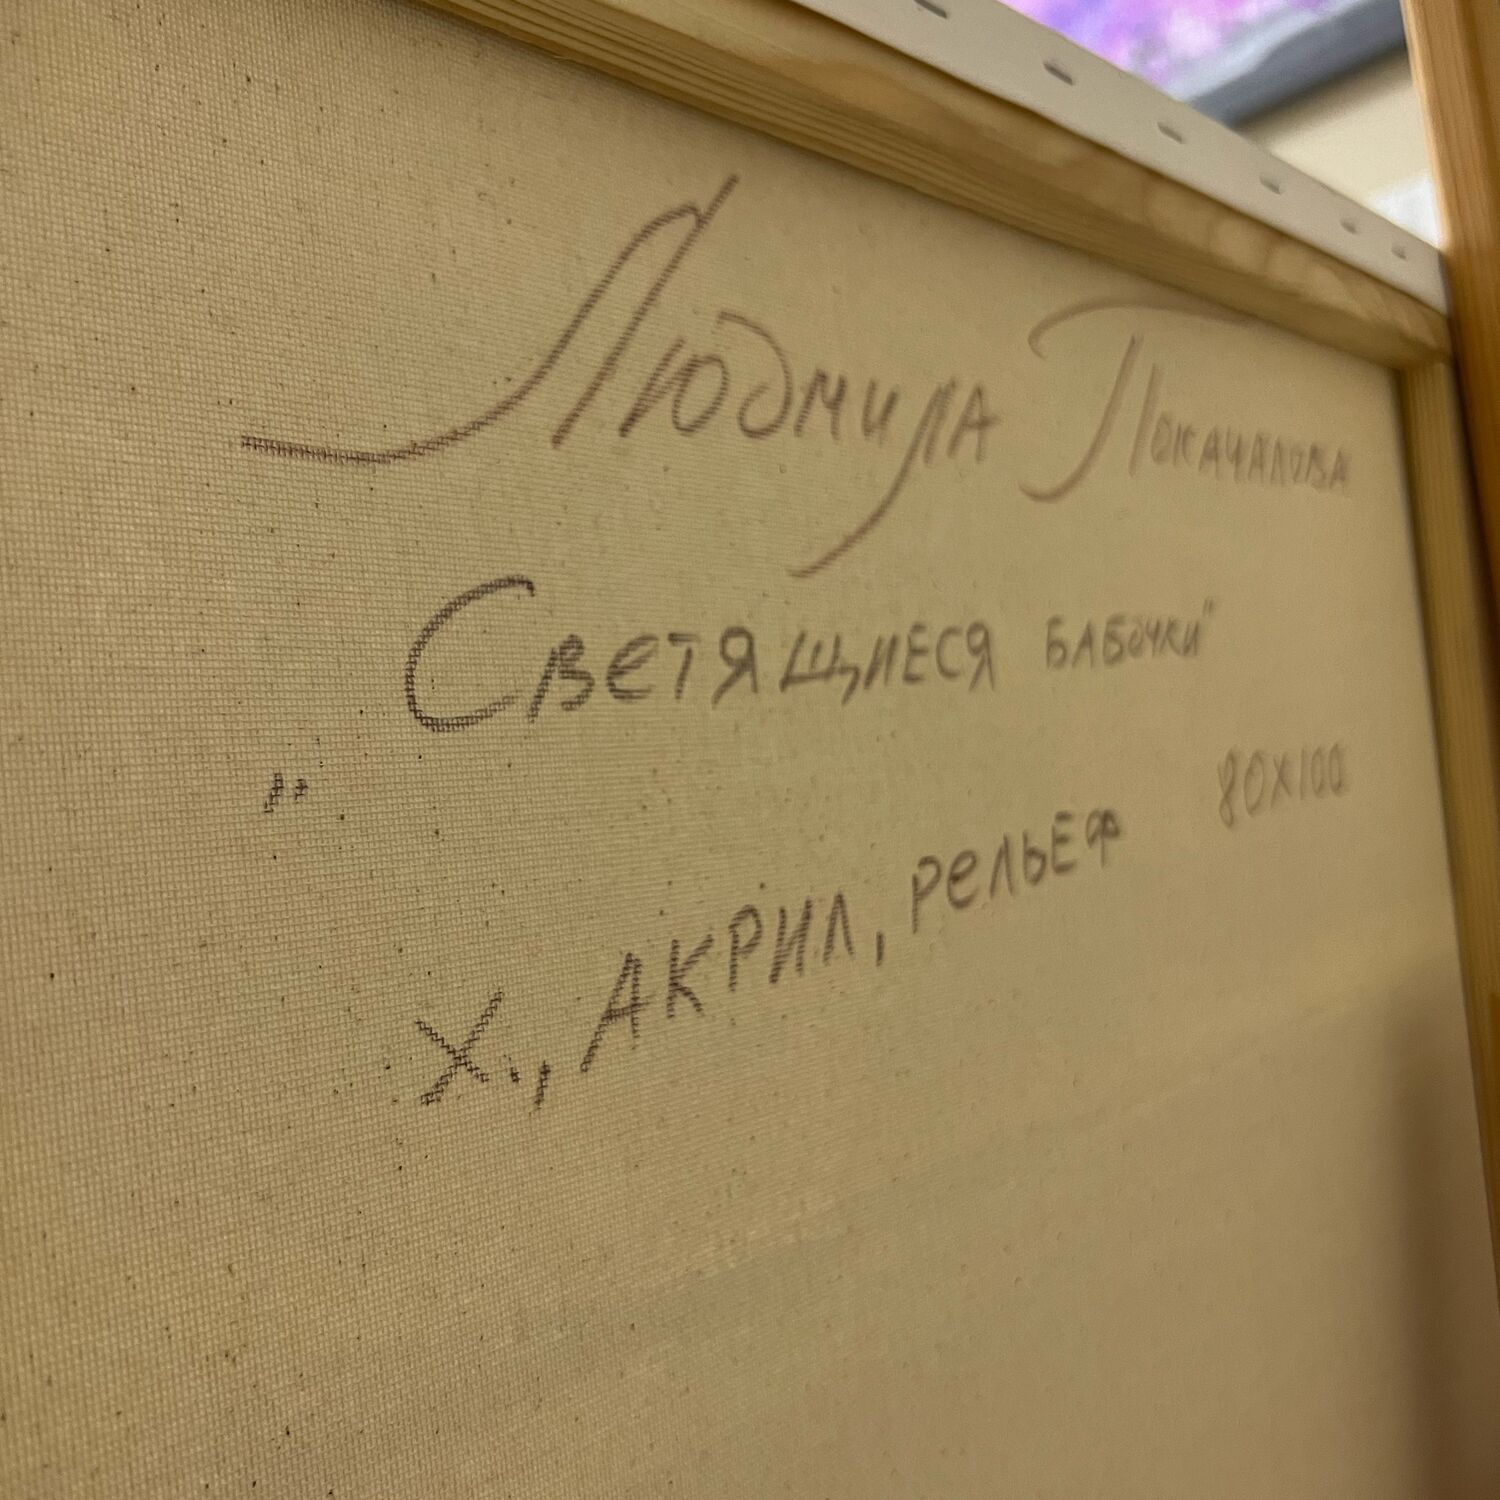 Людмила Покачалова
"Светящиеся бабочки"
Х., АКРИЛ, рельеф 80х100